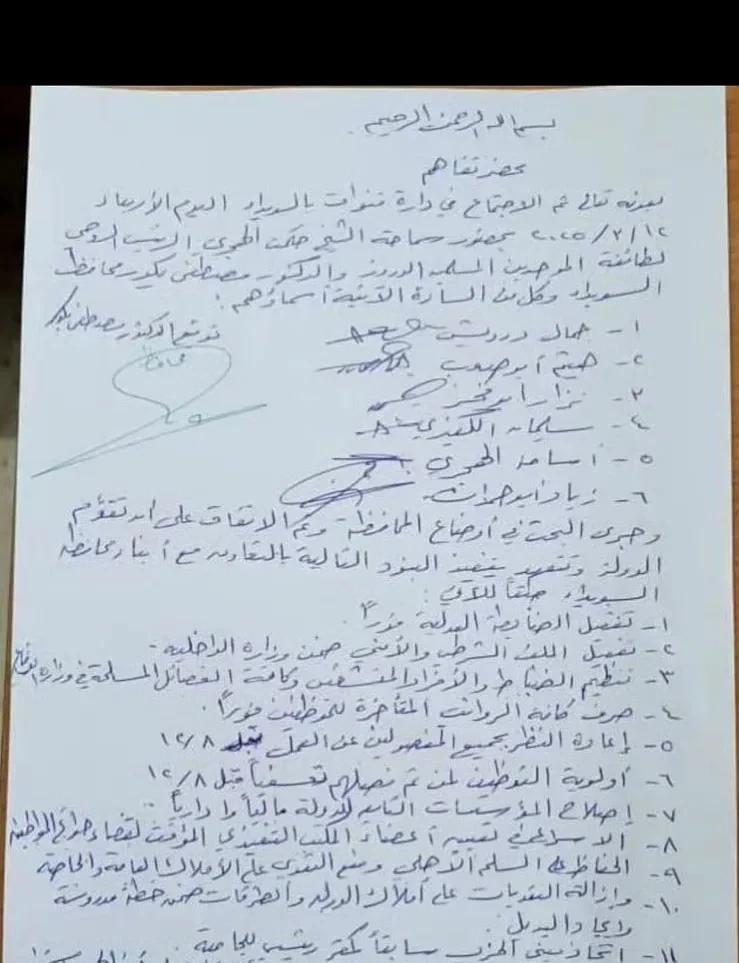 بسم الله الرحمن الرحيم
محضر تفاهم
بعونه تعالى تم الاجتماع في دارة قنوات بالسويداء اليوم الأربعاء
١٢/٣/٢٠٢٥ بحضور سماحة الشيخ حكمت الهجري الرئيس الروحي
لطائفة الموحدين المسلمين الدروز والدكتور مصطفى بكور محافظ
السويداء وكل من السادة الآتية أسماؤهم:
توقيع الدكتور مصطفى بكور
محافظ
١- جمال درويش
٢- هيثم أبو صعب
٣- نزار أبو فخر
٤- سليمان الكفيري
٥- أسامة الهجري
٦- زياد أبو حمدان
وجرى البحث في أوضاع المحافظة وتم الاتفاق على أن تقوم
الدولة وتتعهد بتنفيذ البنود التالية بالتعاون مع أبناء محافظة
السويداء للآتي:
١- تفعيل الضابطة العدلية فوراً.
٢- تفعيل الملف الشرطي والأمني ضمن وزارة الداخلية.
٣- تنظيم الضباط والأفراد المنشقين وكافة الفصائل المسلحة في وزارة الدفاع
٤- صرف كافة الرواتب المتأخرة للموظفين فوراً.
٥- إعادة النظر بجميع المفصولين عن العمل قبل ١٢/٨
٦- أولوية التوظيف لمن تم فصلهم تعسفياً قبل ١٢/٨
٧- إصلاح المؤسسات التابعة للدولة مالياً وإدارياً.
٨- الاسراع في تعيين أعضاء المكتب التنفيذي المؤقت لقضاء حوائج المواطنين
٩- الحفاظ على السلم الأهلي ومنع التعدي على الأملاك العامة والخاصة
١٠- وإزالة التعديات على أملاك الدولة والطرقات ضمن خطة مدروسة
وإيجاد البديل.
١١- اتخاذ مبنى الحزب سابقاً كمقر رئيسي للجامعة